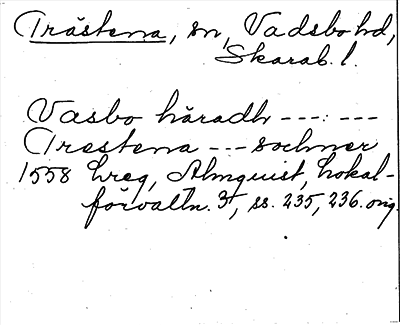 Trästena, sn, Vadsbo hd,
Skarab. l.
Vasbo häradh ---:---
Trestena --- sochner
1558 Lreg, Almquist, Lokal-
förvaltn. 3, ss. 235, 236. orig.